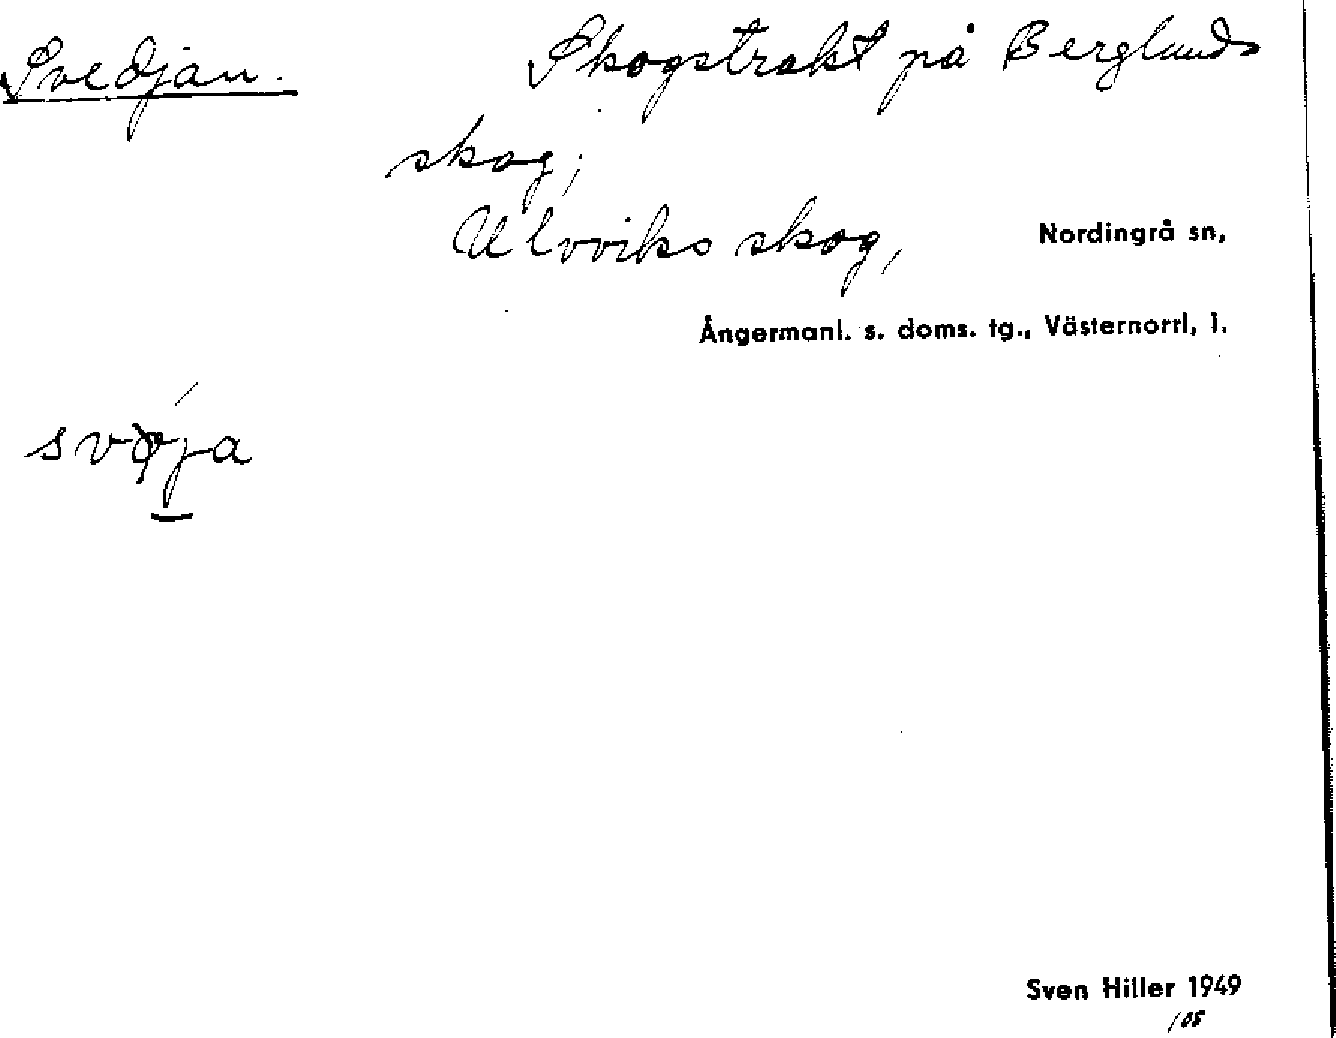 Svedjan. Skogstrakt på Berglands
skog;
Ulvviks skog, Nordingrå sn,
Ångermanl. s. doms. tg., Västernorrl, l.
Sven Hiller 1949
108